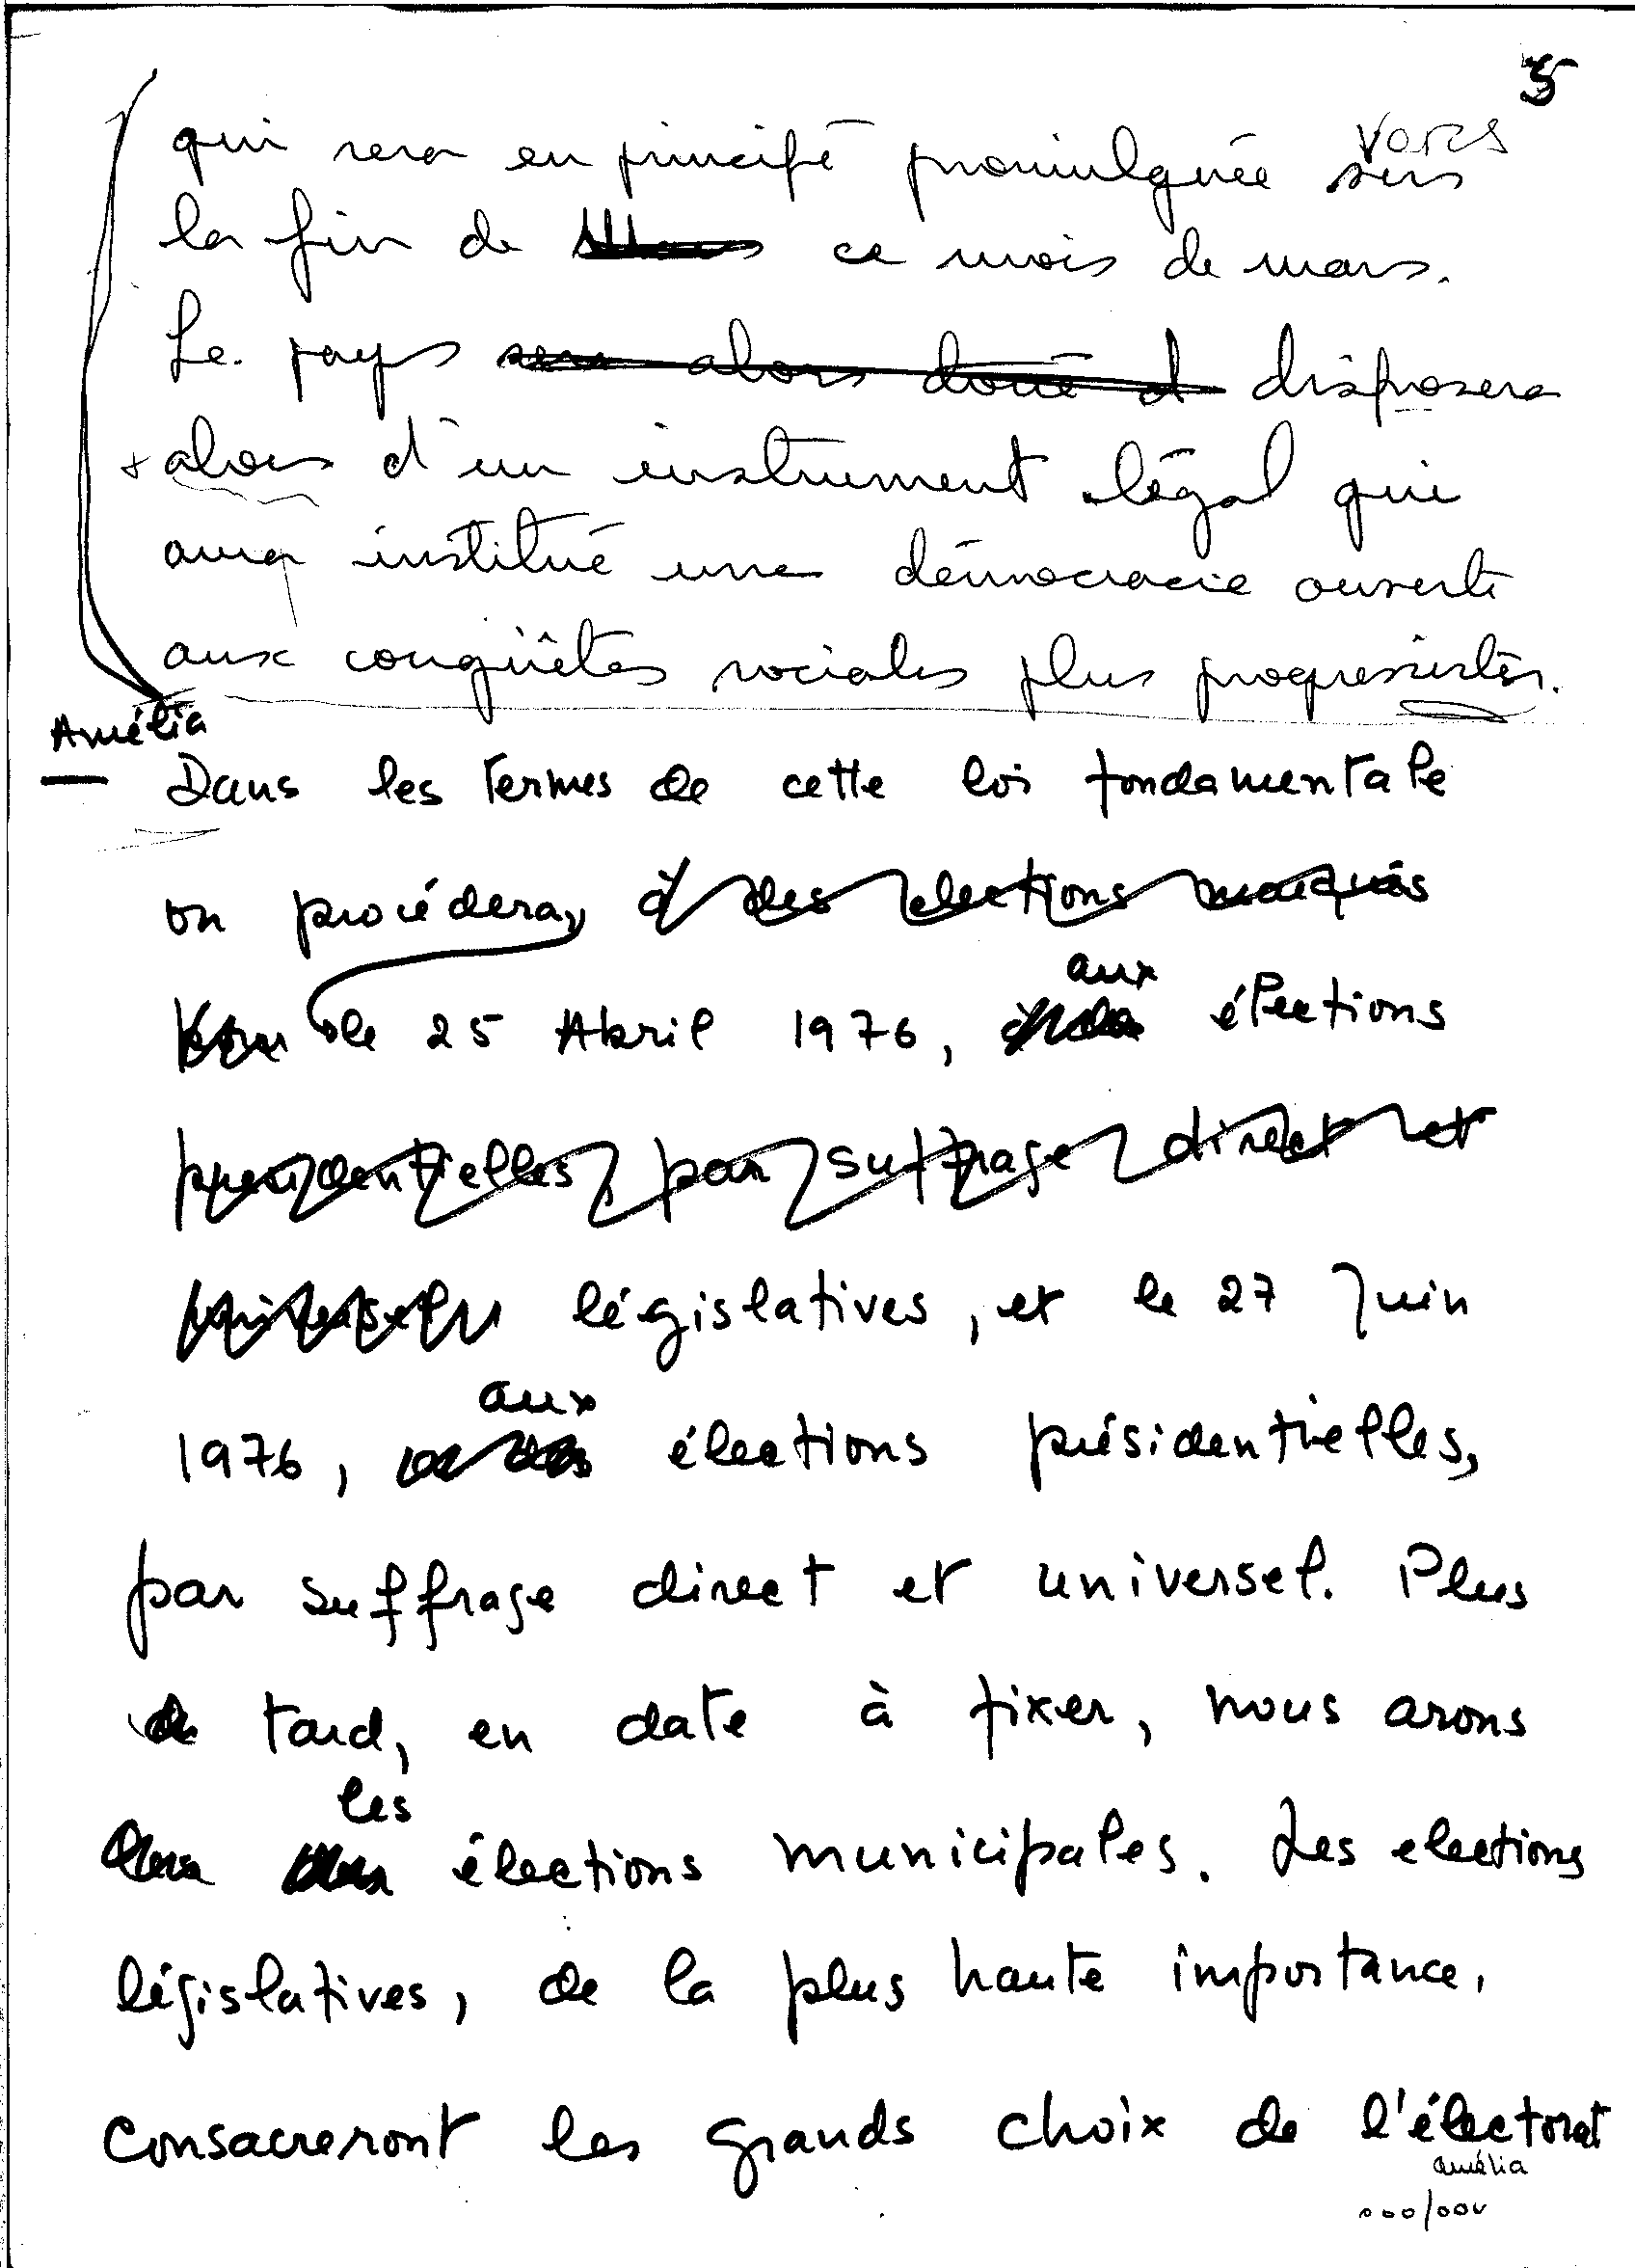 5
qui sera en principe promulguée vers
la fin de ce mois de mars.
Le pays sera alors doué d disposera
alors d'un instrument légal qui
aura institué une démocracie ouverte
aux conquêtes sociales plus progressistes.
Amélia
Dans les termes de cette loi fondamentale
on procédera, à des elections marqués
le 25 Abril 1976, aux élections
presidentielles, par suffrage direct et
universel législatives, et le 27 Juin
1976, aux élections présidentielles,
par suffrage direct et universel. Plus
tard, en date à fixer, nous arons
les élections municipales. Les elections
législatives, de la plus haute importance,
consacreront les grands choix de l'électorat
amélia